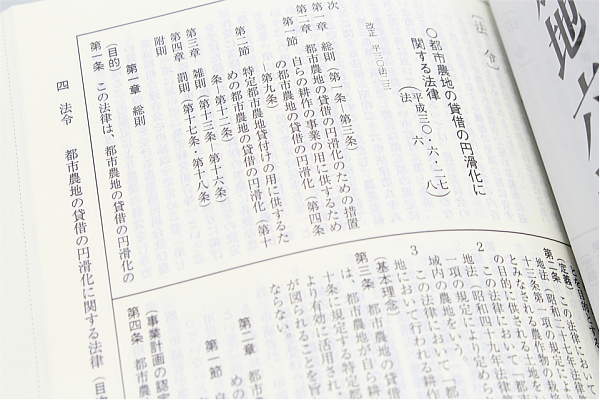 〔法令〕
○都市農地の貸借の円滑化に
関する法律
(平成三〇・六・二七
法 六八)
改正 平三〇法二三
次
第一章 総則(第一条―第三条)
第二章 都市農地の貸借の円滑化のための措置
第一節 自らの耕作の事業の用に供するため
の都市農地の貸借の円滑化(第四条
―第九条)
第二節 特定都市農地貸付けの用に供するた
めの都市農地の貸借の円滑化(第十
条―第十二条)
第三章 雑則(第十三条―第十六条)
第四章 罰則(第十七条・第十八条)
附則
第一章 総則
(目的)
第一条 この法律は、都市農地の貸借の円滑化の
(定義)
第二条 この法律において
地法(昭和二十七年法
十三条第一項の規定により
とみなされる農作物の栽培
の目的に供される土地をい
2 この法律において「都市
地法(昭和四十九年法律第
一項の規定により定めら
域内の農地をいう。
3 この法律において、「都
地において行われる耕作
(基本理念)
第三条 都市農地の貸借
は、都市農地が自ら耕
十条に規定する特定都
より有効に活用され、
が図られることを旨
ならない。
第二章 都市
めの
第一節
(事業計画の認定
第四条 都市農
四 法令 都市農地の貸借の円滑化に関する法律(目
地六